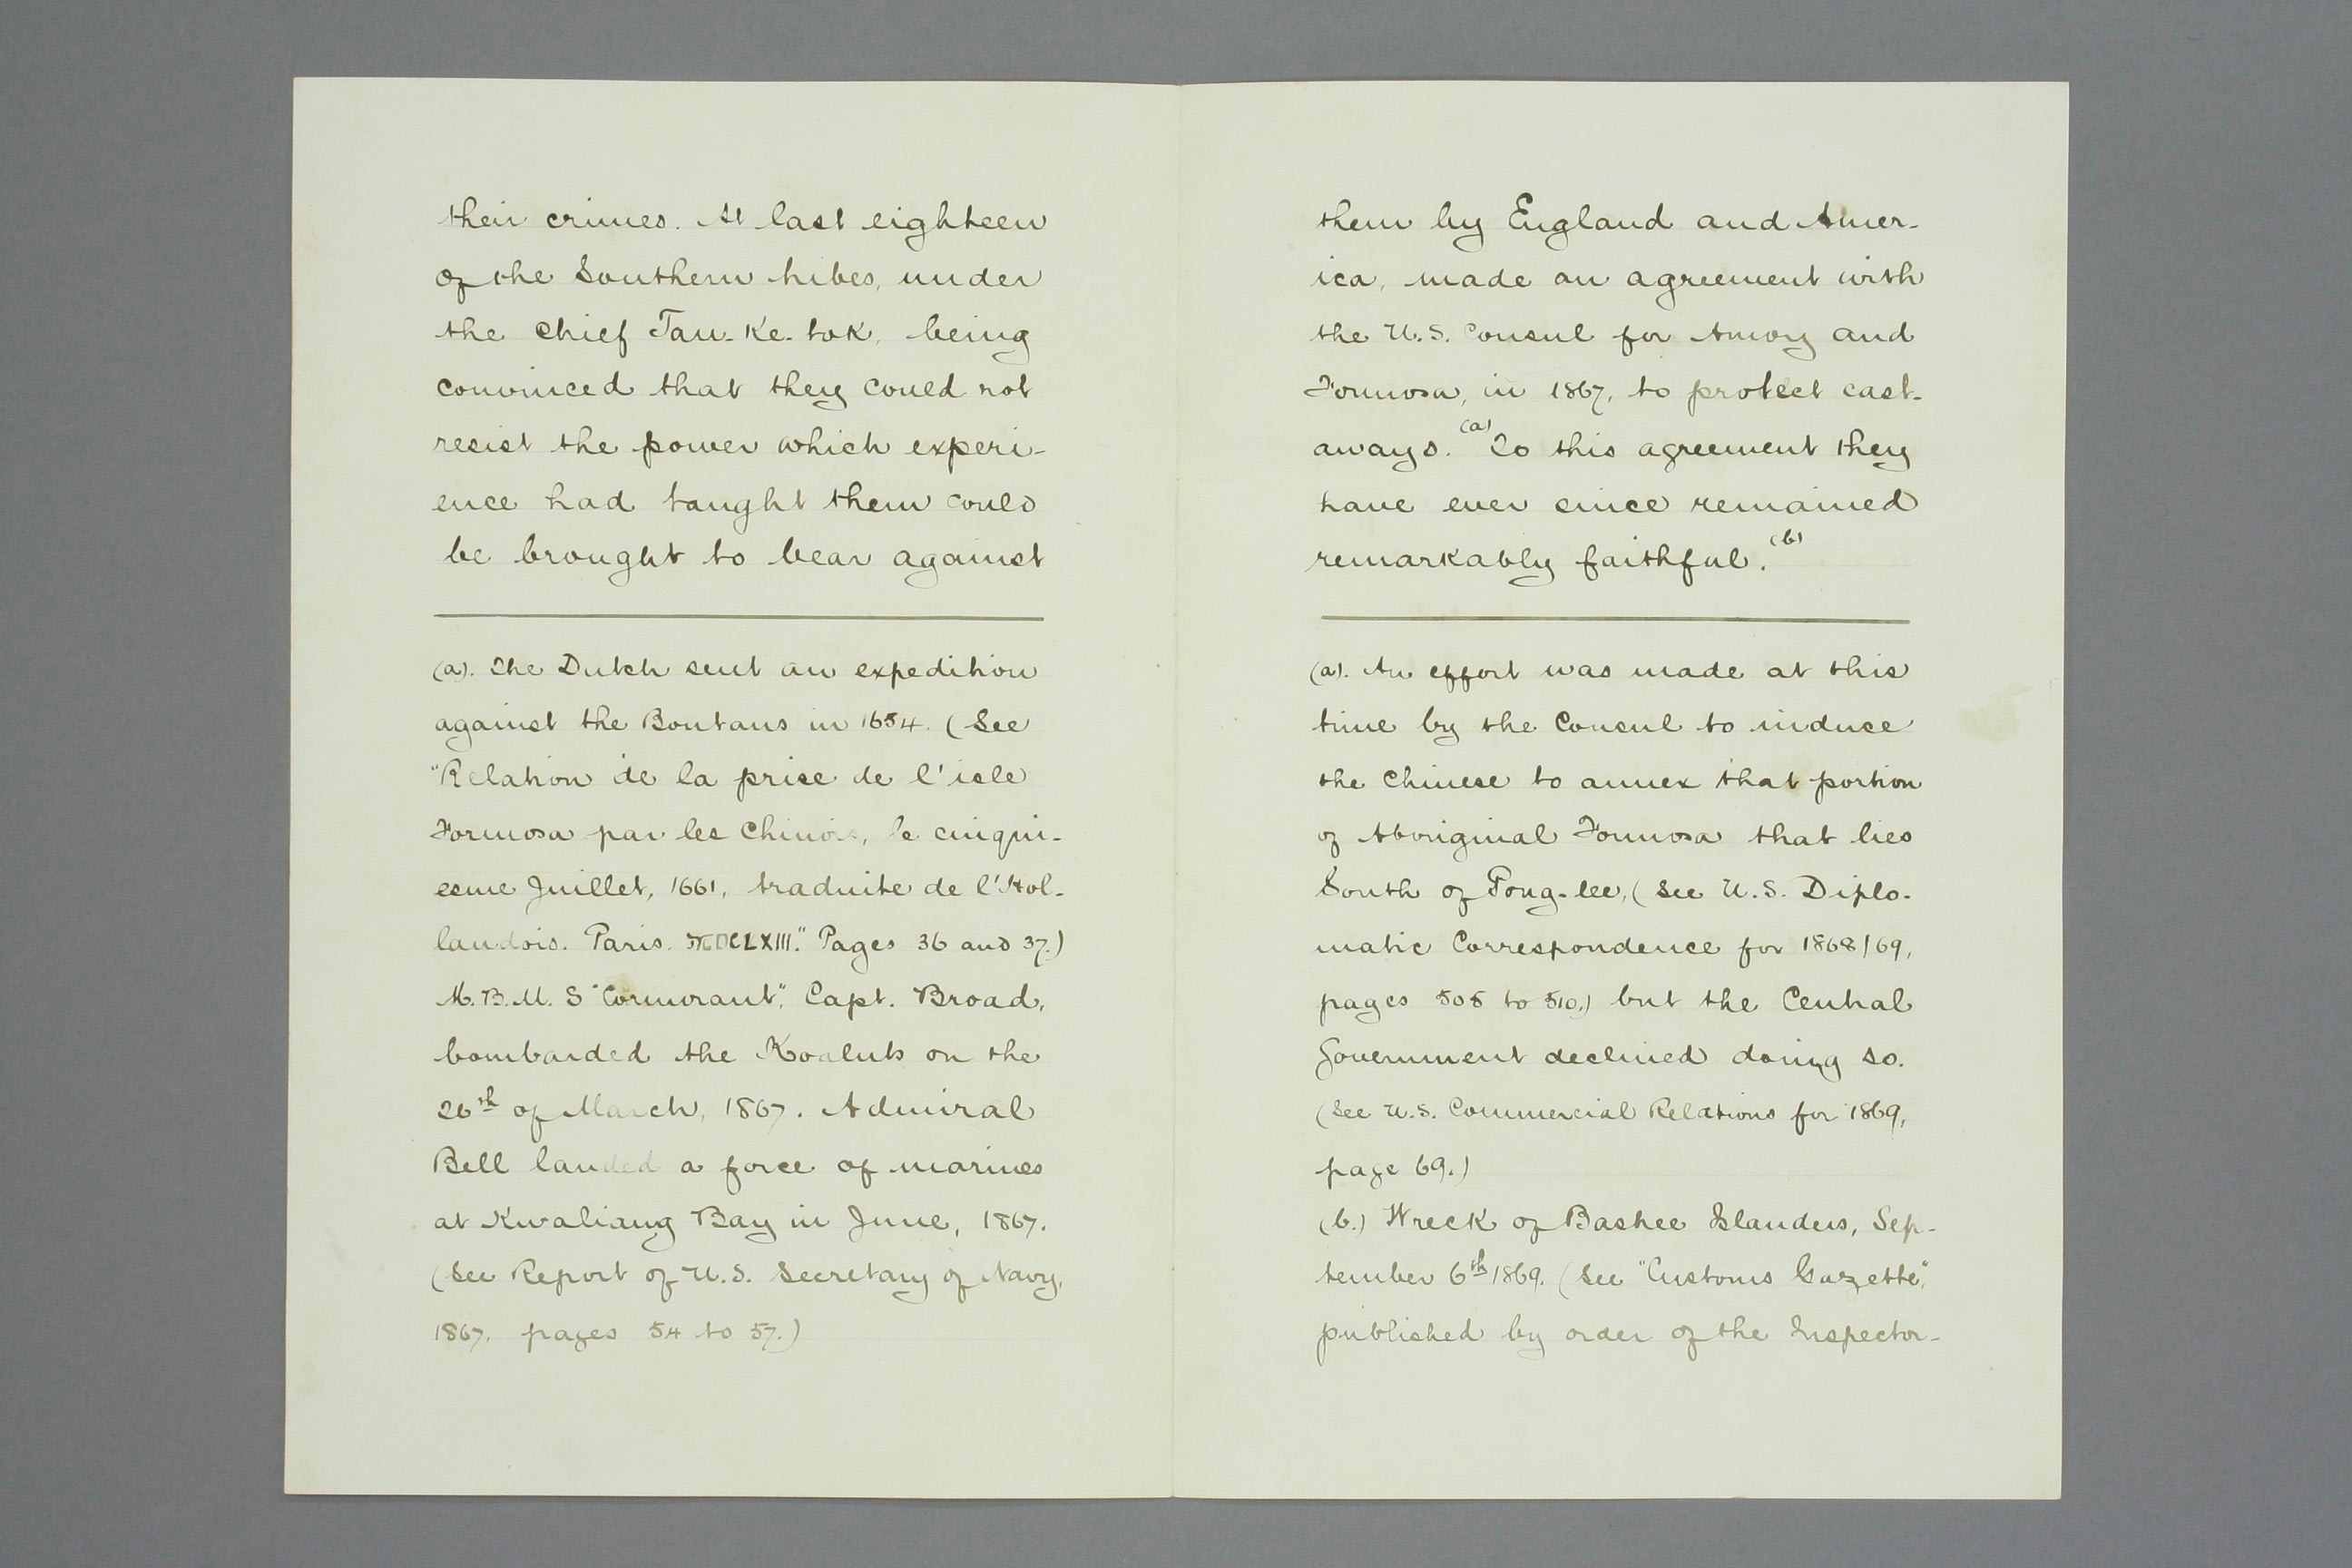 their crimes. At last eighteen
of the Southern tribes, under
the Chief Tau-Ke-tok, being
convinced that they could not
resist the power which experi-
ence had taught them could
be brought to bear against
(a). The Dutch sent an expedition
against the Boutans in 1654. (See
"Relation de la prise de l'isle
Formosa par les Chinois, le cinqui-
esme Juillet, 1661, traduite de l'Hol-
landois. Paris. MDCLXIII." Pages 36 and 37.)
H.B.M.S "Cormorant", Capt. Broad,
bombarded the Koaluts on the
26th of March, 1867. Admiral
Bell landed a force of marines
at Kwaliang Bay in June, 1867.
(See Report of U.S. Secretary of Navy,
1867, pages 54 to 57.)
them by England and Amer-
ica, made an agreement with
the U.S. Consul for Amoy and
Formosa, in 1867, to protect cast-
aways. (a) To this agreement they
have ever since remained
remarkably faithful. (b)
(a). An effort was made at this
time by the Consul to induce
the Chinese to annex that portion
of Aboriginal Formosa that lies
South of Pong-lee, (see U.S. Diplo-
matic Correspondence for 1868/69,
pages 505 to 510,) but the Central
Government declined doing so.
(See U.S. Commercial Relations for 1869,
page 69.)
(b.) Wreck of Bashee Islanders, Sep-
tember 6th 1869. (See "Customs Gazette",
published by order of the Inspector-